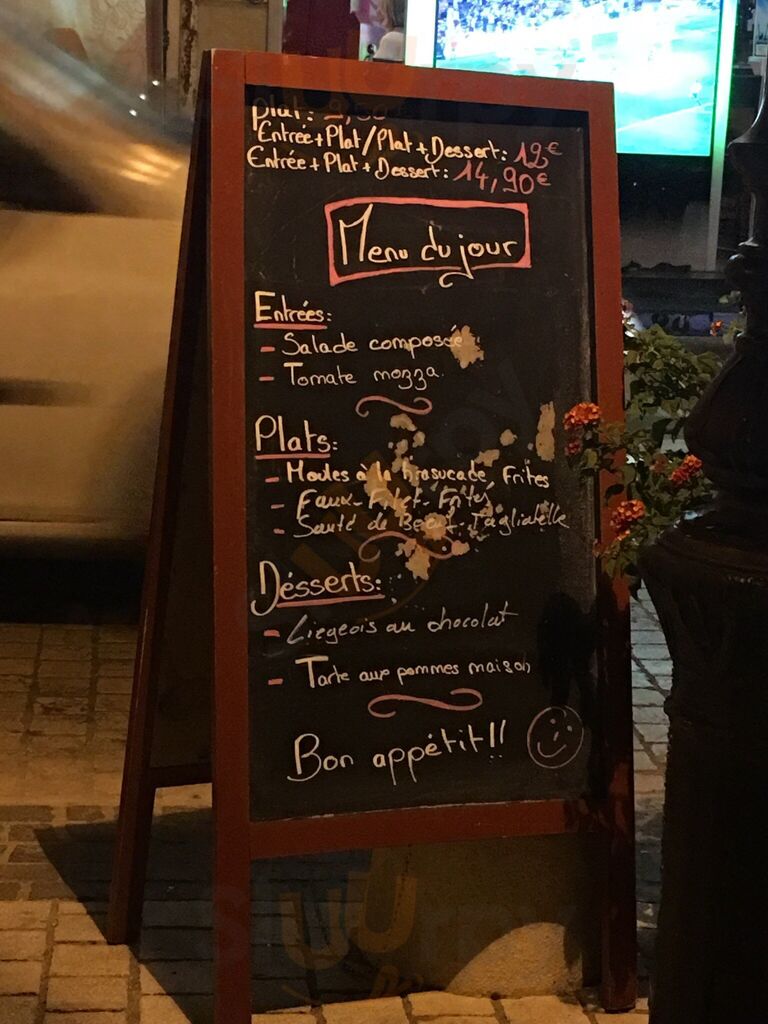 Plat: 9,50€
Entrée+Plat/Plat+Dessert: 12€
Entrée+Plat+Dessert: 14,90€
Menu du jour
Entrées:
- Salade composée
- Tomate mozza.
Plats:
- Moules à la brasucade, Frites
- Faux-Filet-Frites
- Sauté de Boeuf-Tagliatelle
Désserts:
- Liegeois au chocolat
- Tarte aux pommes maison
Bon appétit!!